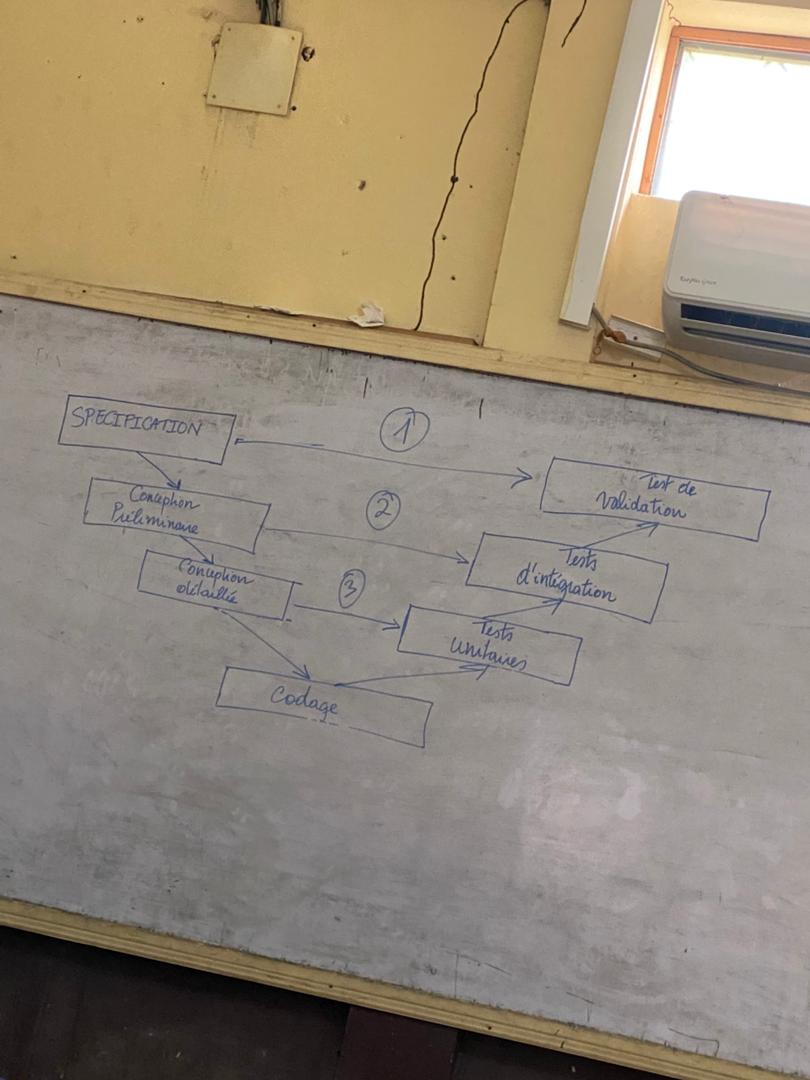 SPECIFICATION
1
Test de
Validation
Conception
Préliminaire
2
Tests
d'intégration
Conception
détaillée
3
Tests
Unitaires
Codage